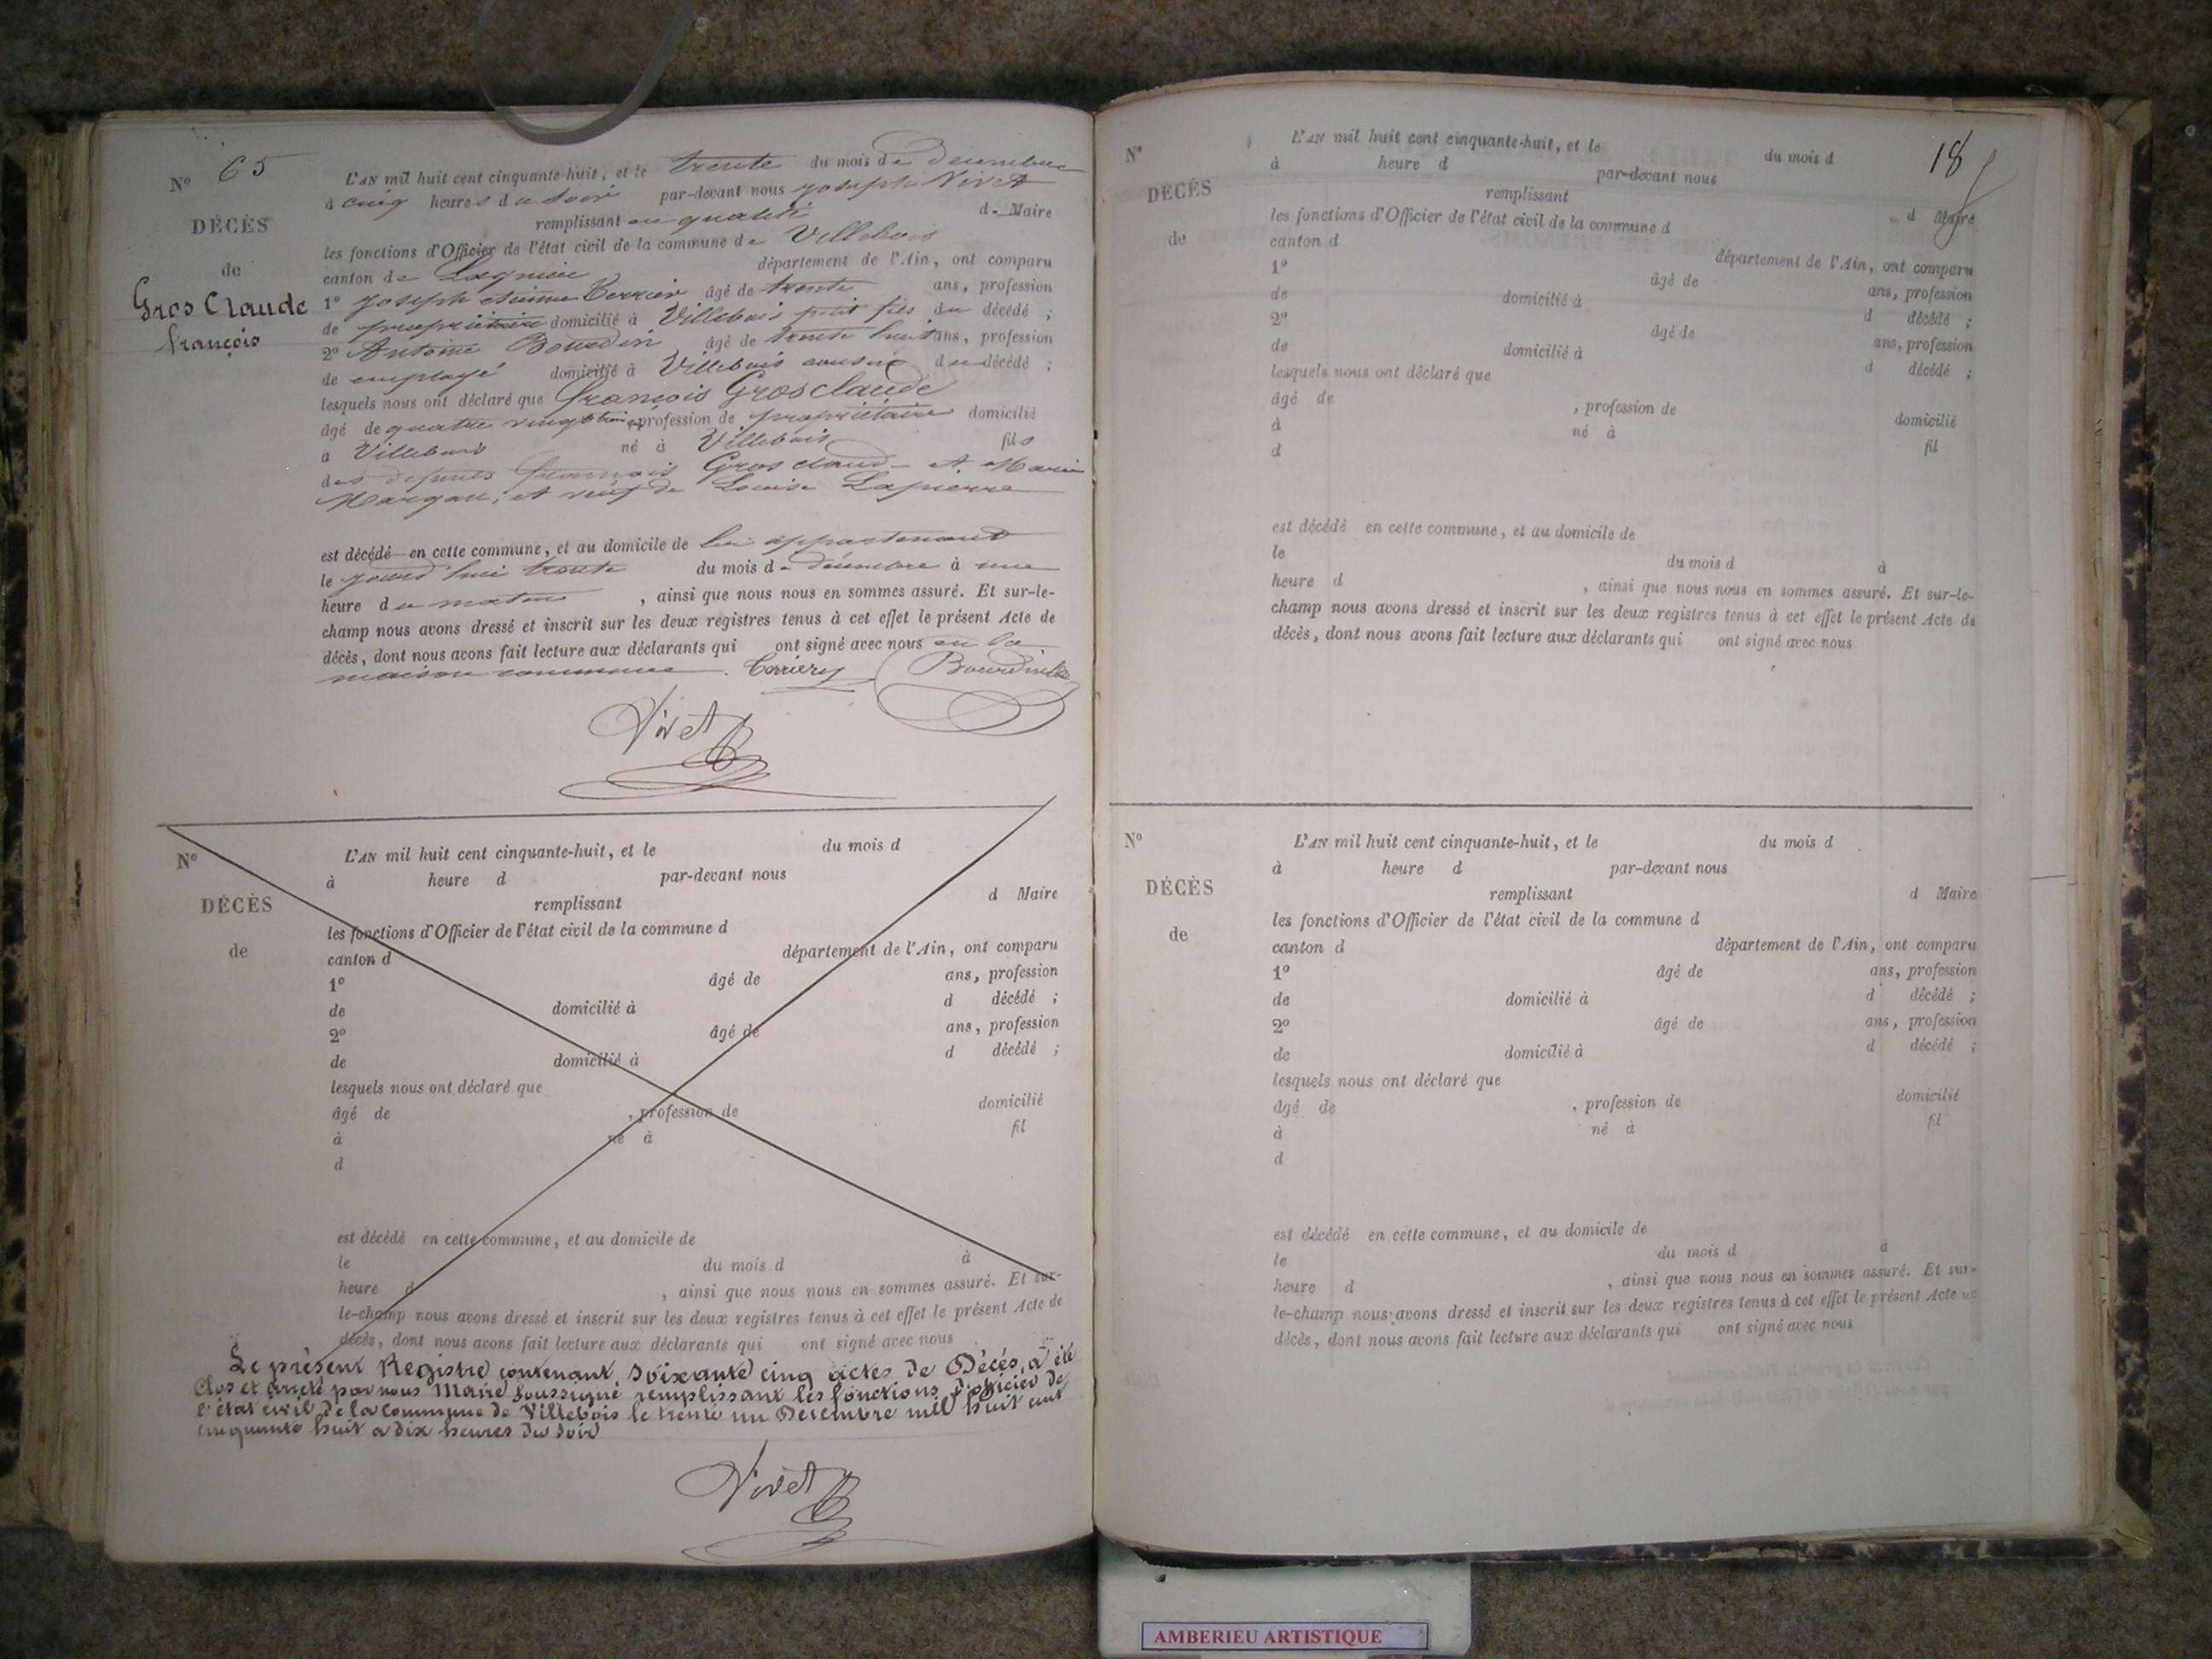 Nº 65
DÉCÈS
de
Gros Claude
François
L'AN mil huit cent cinquante-huit, et le trente du mois de Décembre
à cinq heures du soir par-devant nous Joseph Vivet
remplissant en qualité de Maire
les fonctions d'Officier de l'état civil de la commune de Villebois
canton de Lagnieu département de l'Ain, ont comparu
1º Joseph Terrier âgé de trente ans, profession
de propriétaire domicilié à Villebois petit fils du décédé ;
2º Antoine Bourdin âgé de trente huit ans, profession
de employé domicilié à Villebois cousin du décédé ;
lesquels nous ont déclaré que François Grosclaude
âgé de quatre vingt profession de propriétaire domicilié
à Villebois né à Villebois fils
des défunts François Gros claude et Marie
et veuf de Louise Lapierre
est décédé en cette commune, et au domicile de lui appartenant
le jourd'hui trente du mois de décembre à une
heure du matin , ainsi que nous nous en sommes assuré. Et sur-le-
champ nous avons dressé et inscrit sur les deux registres tenus à cet effet le présent Acte de
décès, dont nous avons fait lecture aux déclarants qui ont signé avec nous en la
maison commune. Terrier Bourdin
Vivet
Nº
DÉCÈS
de
L'AN mil huit cent cinquante-huit, et le du mois d
à heure d par-devant nous
remplissant d Maire
les fonctions d'Officier de l'état civil de la commune d
canton d département de l'Ain, ont comparu
1º âgé de ans, profession
de domicilié à d décédé ;
2º âgé de ans, profession
de domicilié à d décédé ;
lesquels nous ont déclaré que
âgé de , profession de domicilié
à né à fil
d
est décédé en cette commune, et au domicile de
le du mois d à
heure d , ainsi que nous nous en sommes assuré. Et sur-
le-champ nous avons dressé et inscrit sur les deux registres tenus à cet effet le présent Acte de
décès, dont nous avons fait lecture aux déclarants qui ont signé avec nous
Le présent Registre contenant soixante cinq actes de Décès, a été
Clos et arrêté par nous Maire soussigné remplissant les fonctions d'officier de
l'état civil de la Commune de Villebois le trente un Décembre mil huit cent
cinquante huit a dix heures du soir
Vivet
18
Nº
DÉCÈS
de
L'AN mil huit cent cinquante-huit, et le du mois d
à heure d par-devant nous
remplissant d Maire
les fonctions d'Officier de l'état civil de la commune d
canton d département de l'Ain, ont comparu
1º âgé de ans, profession
de domicilié à d décédé ;
2º âgé de ans, profession
de domicilié à d décédé ;
lesquels nous ont déclaré que
âgé de , profession de domicilié
à né à fil
d
est décédé en cette commune, et au domicile de
le du mois d à
heure d , ainsi que nous nous en sommes assuré. Et sur-le-
champ nous avons dressé et inscrit sur les deux registres tenus à cet effet le présent Acte de
décès, dont nous avons fait lecture aux déclarants qui ont signé avec nous
Nº
DÉCÈS
de
L'AN mil huit cent cinquante-huit, et le du mois d
à heure d par-devant nous
remplissant d Maire
les fonctions d'Officier de l'état civil de la commune d
canton d département de l'Ain, ont comparu
1º âgé de ans, profession
de domicilié à d décédé ;
2º âgé de ans, profession
de domicilié à d décédé ;
lesquels nous ont déclaré que
âgé de , profession de domicilié
à né à fil
d
est décédé en cette commune, et au domicile de
le du mois d à
heure d , ainsi que nous nous en sommes assuré. Et sur-
le-champ nous avons dressé et inscrit sur les deux registres tenus à cet effet le présent Acte de
décès, dont nous avons fait lecture aux déclarants qui ont signé avec nous
AMBERIEU ARTISTIQUE